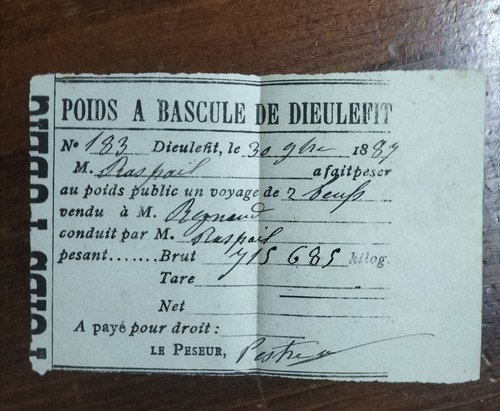 POIDS PUBLIC
POIDS A BASCULE DE DIEULEFIT
No 183 Dieulefit, le 30 9bre 1887
M. Raspail a fait peser
au poids public un voyage de 2 beufs
vendu à M. Reynaud
conduit par M. Raspail
pesant.......Brut 715 685 kilog.
Tare
Net
A payé pour droit :
LE PESEUR,